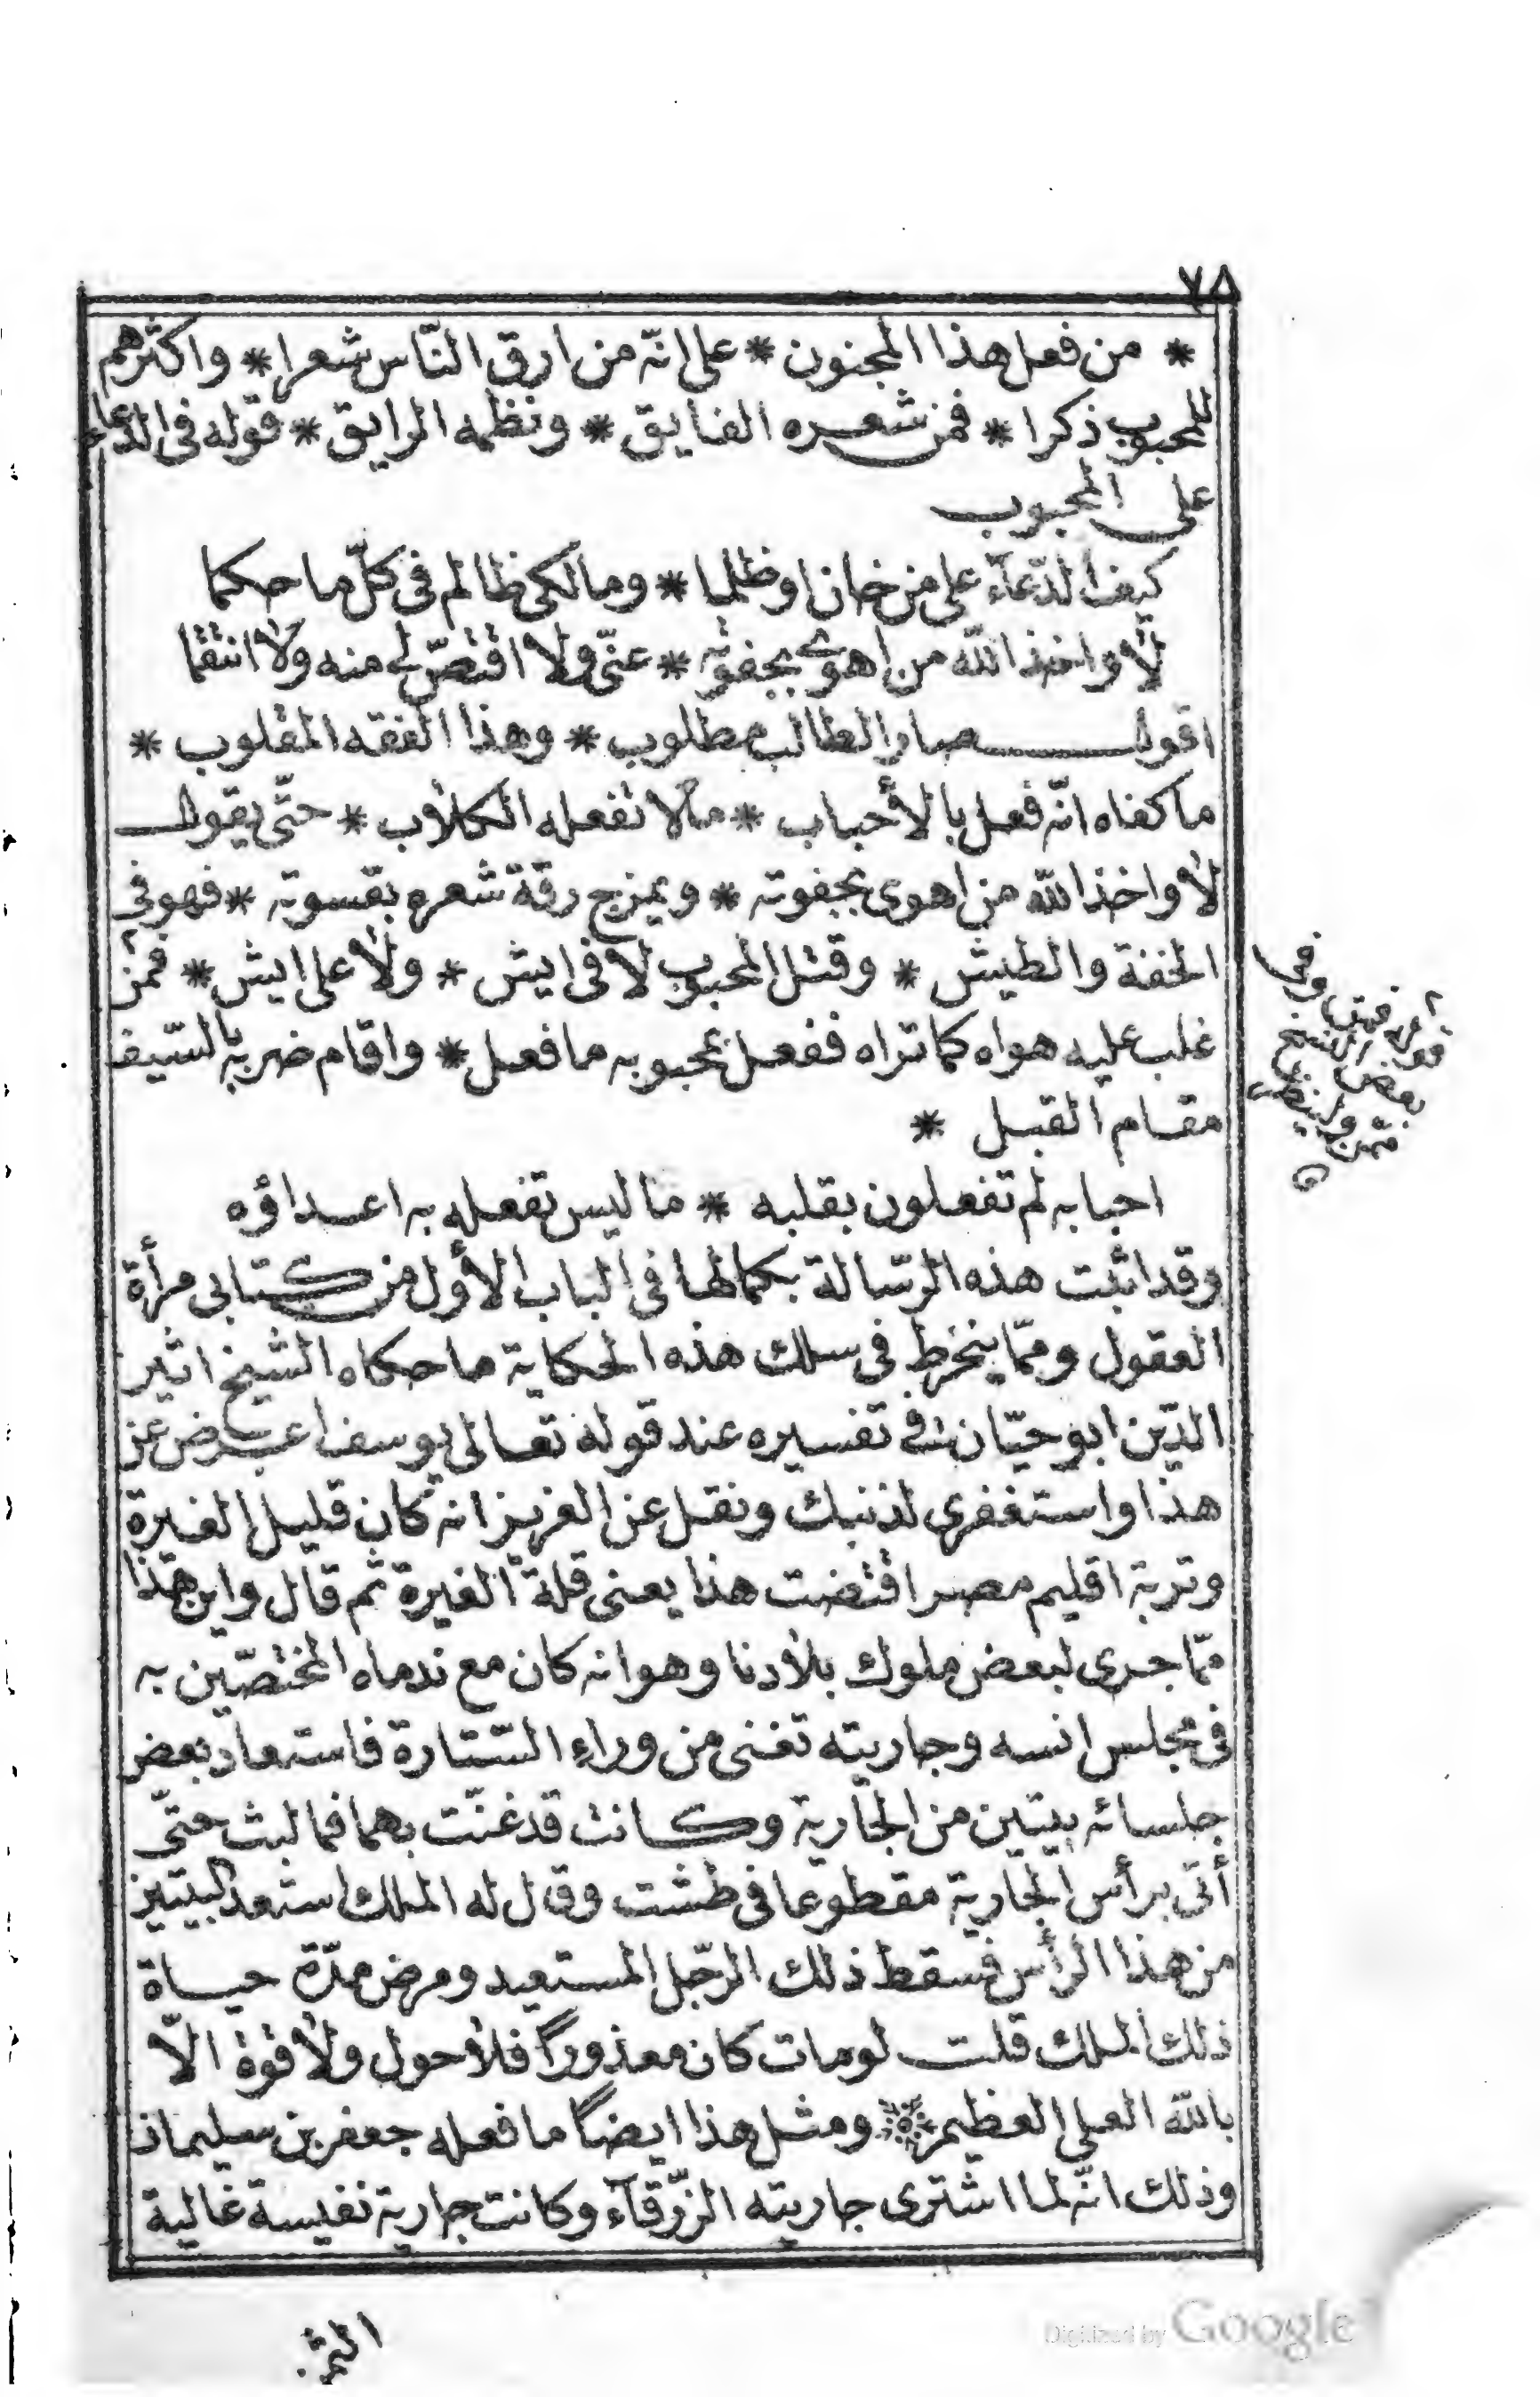 ٧٨
* من فعل هذا المجنون * على انّه من ارق النّاس شعرا * واكثرهم
للمحبوب ذكرا * فمن شعره الفايق * ونظمه الرايق * قوله فى الدعاء
على المحبوب
كيف الدّعآء على من خان او ظلما * ومالكى ظالم فى كلّ ما حكما
لا واخذ الله من اهوى بجفوته * عنّى ولا اقتصّ لى منه ولا انتقما
اقول صار الطالب مطلوب * وهذا الفقه المقلوب *
ما كفاه انّه فعل بالأحباب * ما لا تفعله الكلاب * حتّى يقول
لا واخذ الله من اهوى بجفوته * ويمزج رقّة شعره بقسوته * فهو فى
الخفة والطيش * وقتل المحبوب لا فى ايش * ولا على ايش * فمن
غلب عليه هواه كما تراه ففعل بمحبوبه ما فعل * واقام ضربه بالسّيف
مقام القبل *
احبابه لم تفعلون بقلبه * ما ليس تفعله به اعداؤه
وقد اثبت هذه الرّسالة بكمالها فى الباب الأول من كتابى مرأة
العقول وممّا ينخرط فى سلك هذه الحكاية ما حكاه الشيخ اثير
الدّين ابو حيّان فى تفسيره عند قوله تعالى يوسف اعرض عن
هذا واستغفرى لذنبك ونقل عن العزيز انه كان قليل الغيرة
وتربة اقليم مصر اقتضت هذا يعنى قلة الغيرة ثم قال واين هذا
ممّا جرى لبعض ملوك بلادنا وهو انه كان مع ندماه المختصّين به
فى مجلس انسه وجاريته تغنى من وراء الستّارة فاستعاد بعض
جلسائه بيتين من الجارية وكانت قد غنّت بهما فما لبث حتّى
أتى برأس الجارية مقطوعا فى طشت وقال له الملك استعد البيتين
من هذا الرأس فسقط ذلك الرّجل المستعيد ومرض مدّة حياة
ذلك الملك قلت لو مات كان معذورا فلا حول ولا قوة الّا
بالله العلى العظيم ومثل هذا ايضا ما فعله جعفر بن سليمان
وذلك انّه لما اشترى جاريته الزّرقآء وكانت جارية نفيسة غالية
الثمن
قوله فمن وفى
بعض النسخ
Digitized by Google